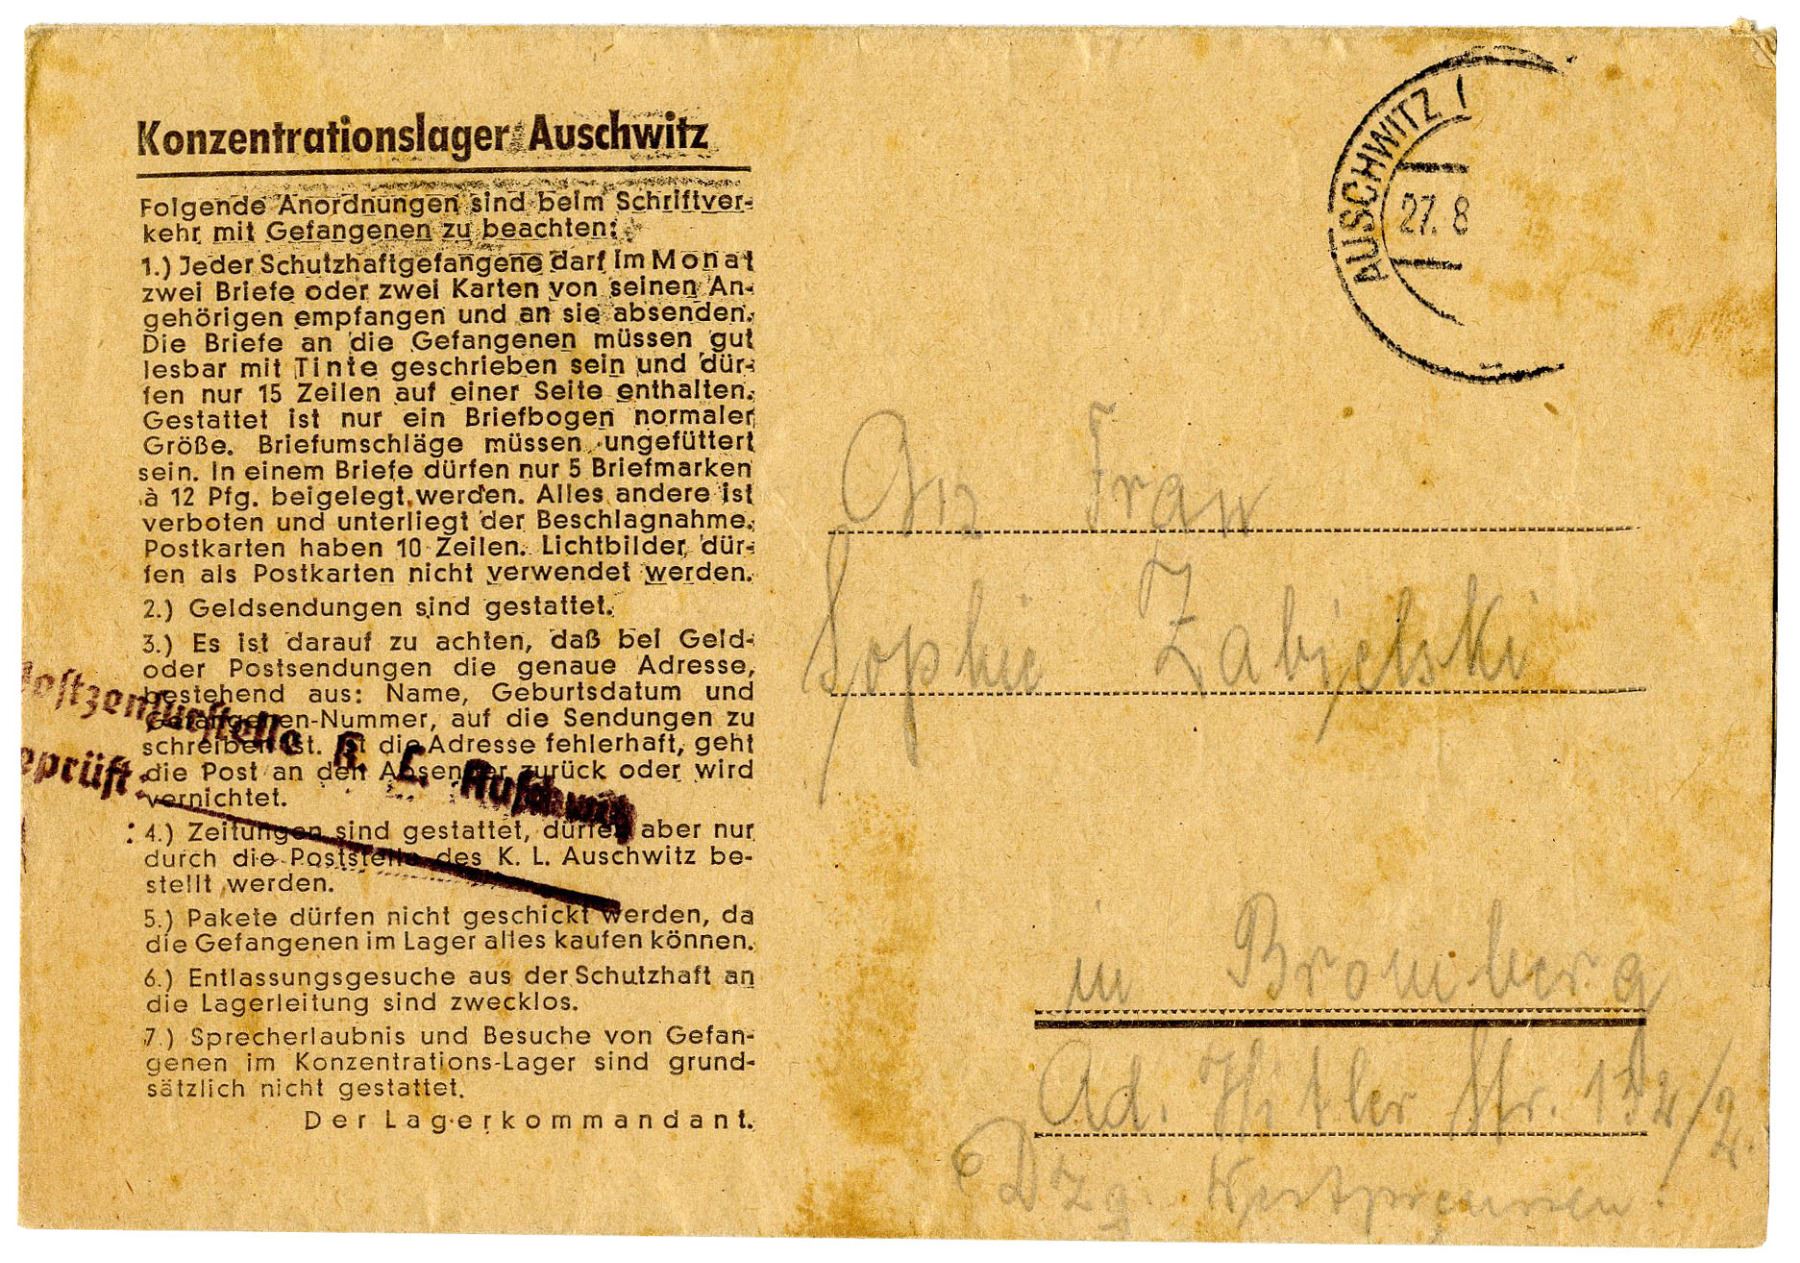 Konzentrationslager Auschwitz
Folgende Anordnungen sind beim Schriftver-
kehr mit Gefangenen zu beachten:
1.) Jeder Schutzhaftgefangene darf im Monat
zwei Briefe oder zwei Karten von seinen An-
gehörigen empfangen und an sie absenden.
Die Briefe an die Gefangenen müssen gut
lesbar mit Tinte geschrieben sein und dür-
fen nur 15 Zeilen auf einer Seite enthalten.
Gestattet ist nur ein Briefbogen normaler
Größe. Briefumschläge müssen ungefüttert
sein. In einem Briefe dürfen nur 5 Briefmarken
à 12 Pfg. beigelegt werden. Alles andere ist
verboten und unterliegt der Beschlagnahme.
Postkarten haben 10 Zeilen. Lichtbilder dür-
fen als Postkarten nicht verwendet werden.
2.) Geldsendungen sind gestattet.
3.) Es ist darauf zu achten, daß bei Geld-
oder Postsendungen die genaue Adresse,
bestehend aus: Name, Geburtsdatum und
Gefangenen-Nummer, auf die Sendungen zu
schreiben ist. Ist die Adresse fehlerhaft, geht
die Post an den Absender zurück oder wird
vernichtet.
4.) Zeitungen sind gestattet, dürfen aber nur
durch die Poststelle des K. L. Auschwitz be-
stellt werden.
5.) Pakete dürfen nicht geschickt werden, da
die Gefangenen im Lager alles kaufen können.
6.) Entlassungsgesuche aus der Schutzhaft an
die Lagerleitung sind zwecklos.
7.) Sprecherlaubnis und Besuche von Gefan-
genen im Konzentrations-Lager sind grund-
sätzlich nicht gestattet.
Der Lagerkommandant.
Postzensurstelle K. L. Auschwitz
geprüft:
AUSCHWITZ
27. 8
An Frau
Sophie Zabjelski
in Bromberg
Ad. Hitler Str. 132/2.
Dzg. Westpreussen.